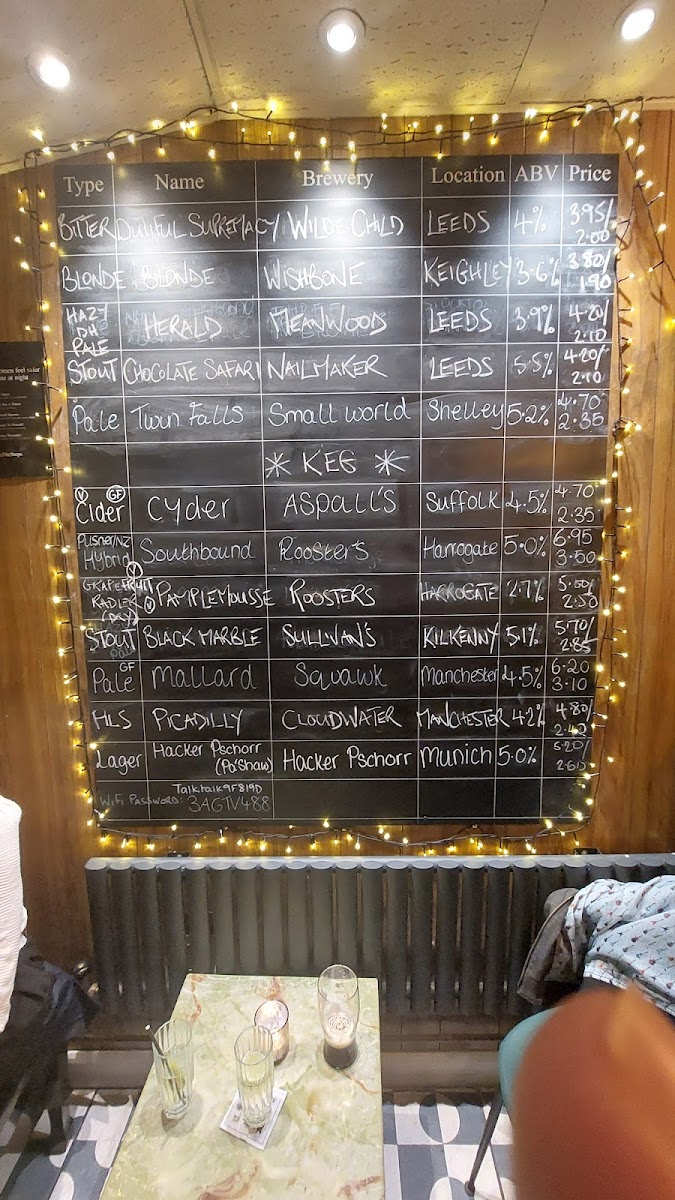 Type Name Brewery Location ABV Price
BITTER DUTIFUL SUPREMACY WILDE CHILD LEEDS 4% 3.95/
2.00
BLONDE BLONDE WISHBONE KEIGHLEY 3.6% 3.80/
1.90
HAZY
DH
PALE HERALD MEANWOOD LEEDS 3.9% 4.20/
2.10
STOUT CHOCOLATE SAFARI NAILMAKER LEEDS 5.5% 4.20/
2.10
Pale Twin Falls Small world Shelley 5.2% 4.70
2.35
* KEG *
V GF
Cider Cyder ASPALL'S Suffolk 4.5% 4.70
2.35
Pilsner/NZ
Hybrid Southbound Rooster's Harrogate 5.0% 6.95
3.50
V
GRAPEFRUIT
RADLER
V PAMPLEMOUSSE ROOSTERS HARROGATE 2.7% 5.00/
2.50
STOUT BLACK MARBLE SULLIVAN'S KILKENNY 5.1% 5.70/
2.85
GF
Pale Mallard Squawk Manchester 4.5% 6.20
3.10
HLS PICADILLY CLOUDWATER MANCHESTER 4.2% 4.80/
2.40
Lager Hacker Pschorr
(Pa'Shaw) Hacker Pschorr Munich 5.0% 5.20/
2.60
Talktalk9F819D
WiFi PASSWORD: 3AGTV488